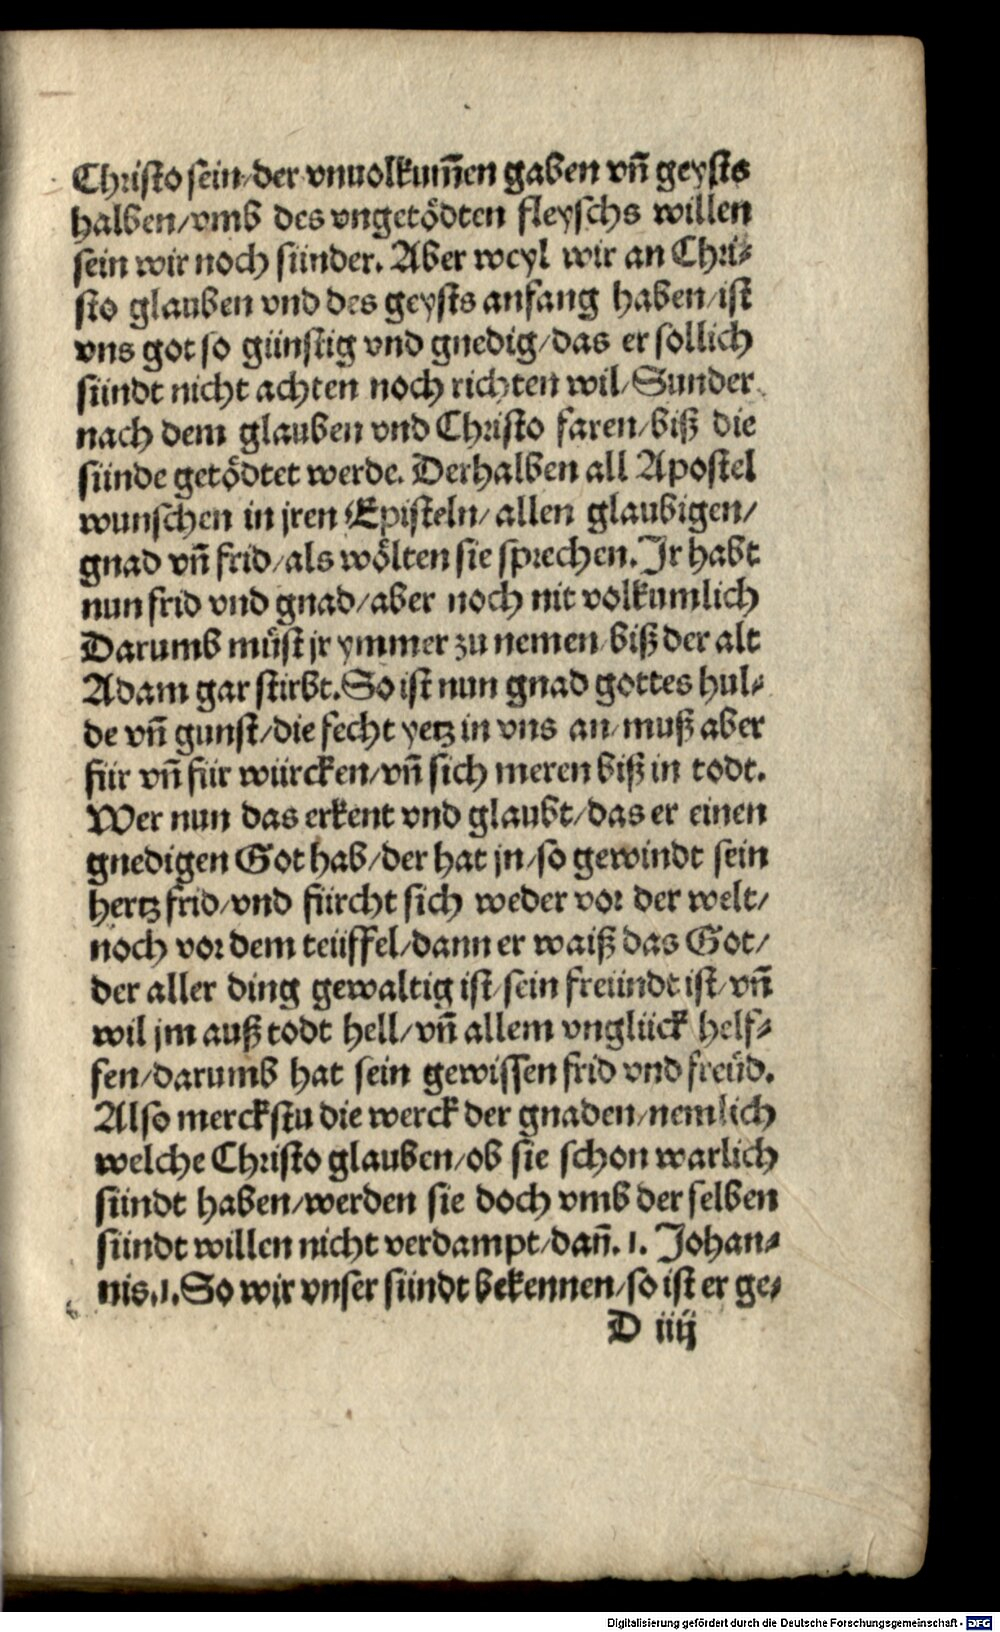 Christo sein/der vnuolkum̃en gaben vñ geysts
halben/vmb des vngetödten fleyschs willen
sein wir noch sünder. Aber weyl wir an Chri⸗
sto glauben vnd des geysts anfang haben/ist
vns got so günstig vnd gnedig/das er sollich
sündt nicht achten noch richten wil/Sunder
nach dem glauben vnd Christo faren/biß die
sünde getödtet werde. Derhalben all Apostel
wunschen in jren Episteln/allen glaubigen/
gnad vñ frid/als wölten sie sprechen. Ir habt
nun frid vnd gnad/aber noch nit volkumlich
Darumb müst jr ymmer zu nemen/biß der alt
Adam gar stirbt. So ist nun gnad gottes hul⸗
de vñ gunst/die fecht yetz in vns an/muß aber
für vñ für würcken/vñ sich meren biß in todt.
Wer nun das erkent vnd glaubt/das er einen
gnedigen Got hab/der hat jn/so gewindt sein
hertz frid/vnd fürcht sich weder vor der welt/
noch vor dem teüffel/dann er waiß das Got/
der aller ding gewaltig ist/sein freündt ist/vñ
wil jm auß todt hell/vñ allem vnglück helf⸗
fen/darumb hat sein gewissen frid vnd freüd.
Also merckstu die werck der gnaden/nemlich
welche Christo glauben/ob sie schon warlich
sündt haben/werden sie doch vmb der selben
sündt willen nicht verdampt/dañ. 1. Johan⸗
nis.1. So wir vnser sündt bekennen/so ist er ge⸗
D iiij
Digitalisierung gefördert durch die Deutsche Forschungsgemeinschaft - DFG